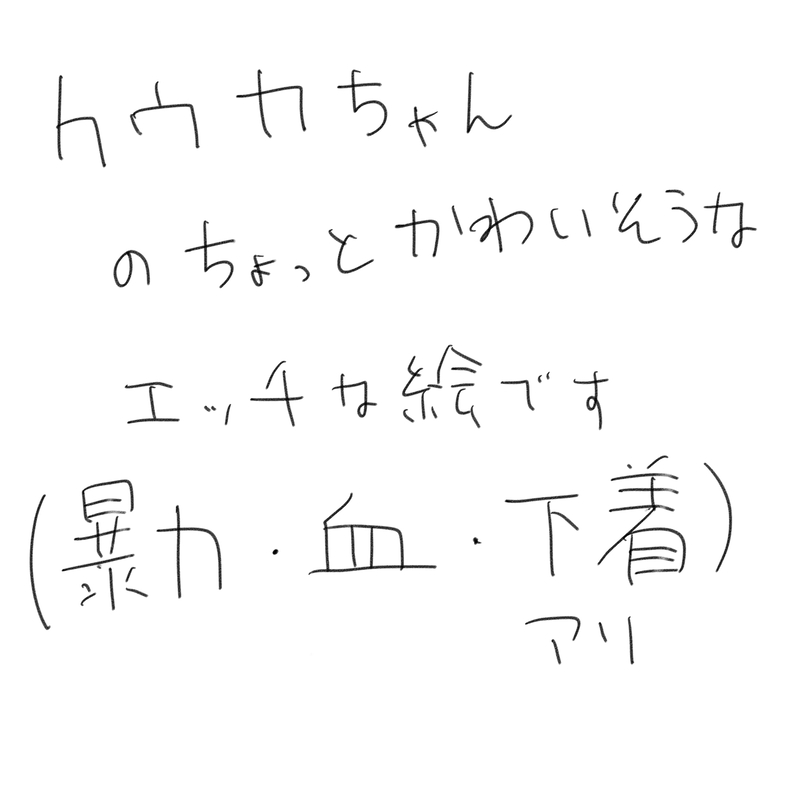 トウカちゃん
のちょっとかわいそうな
エッチな絵です
(暴力・血・下着)
アリ